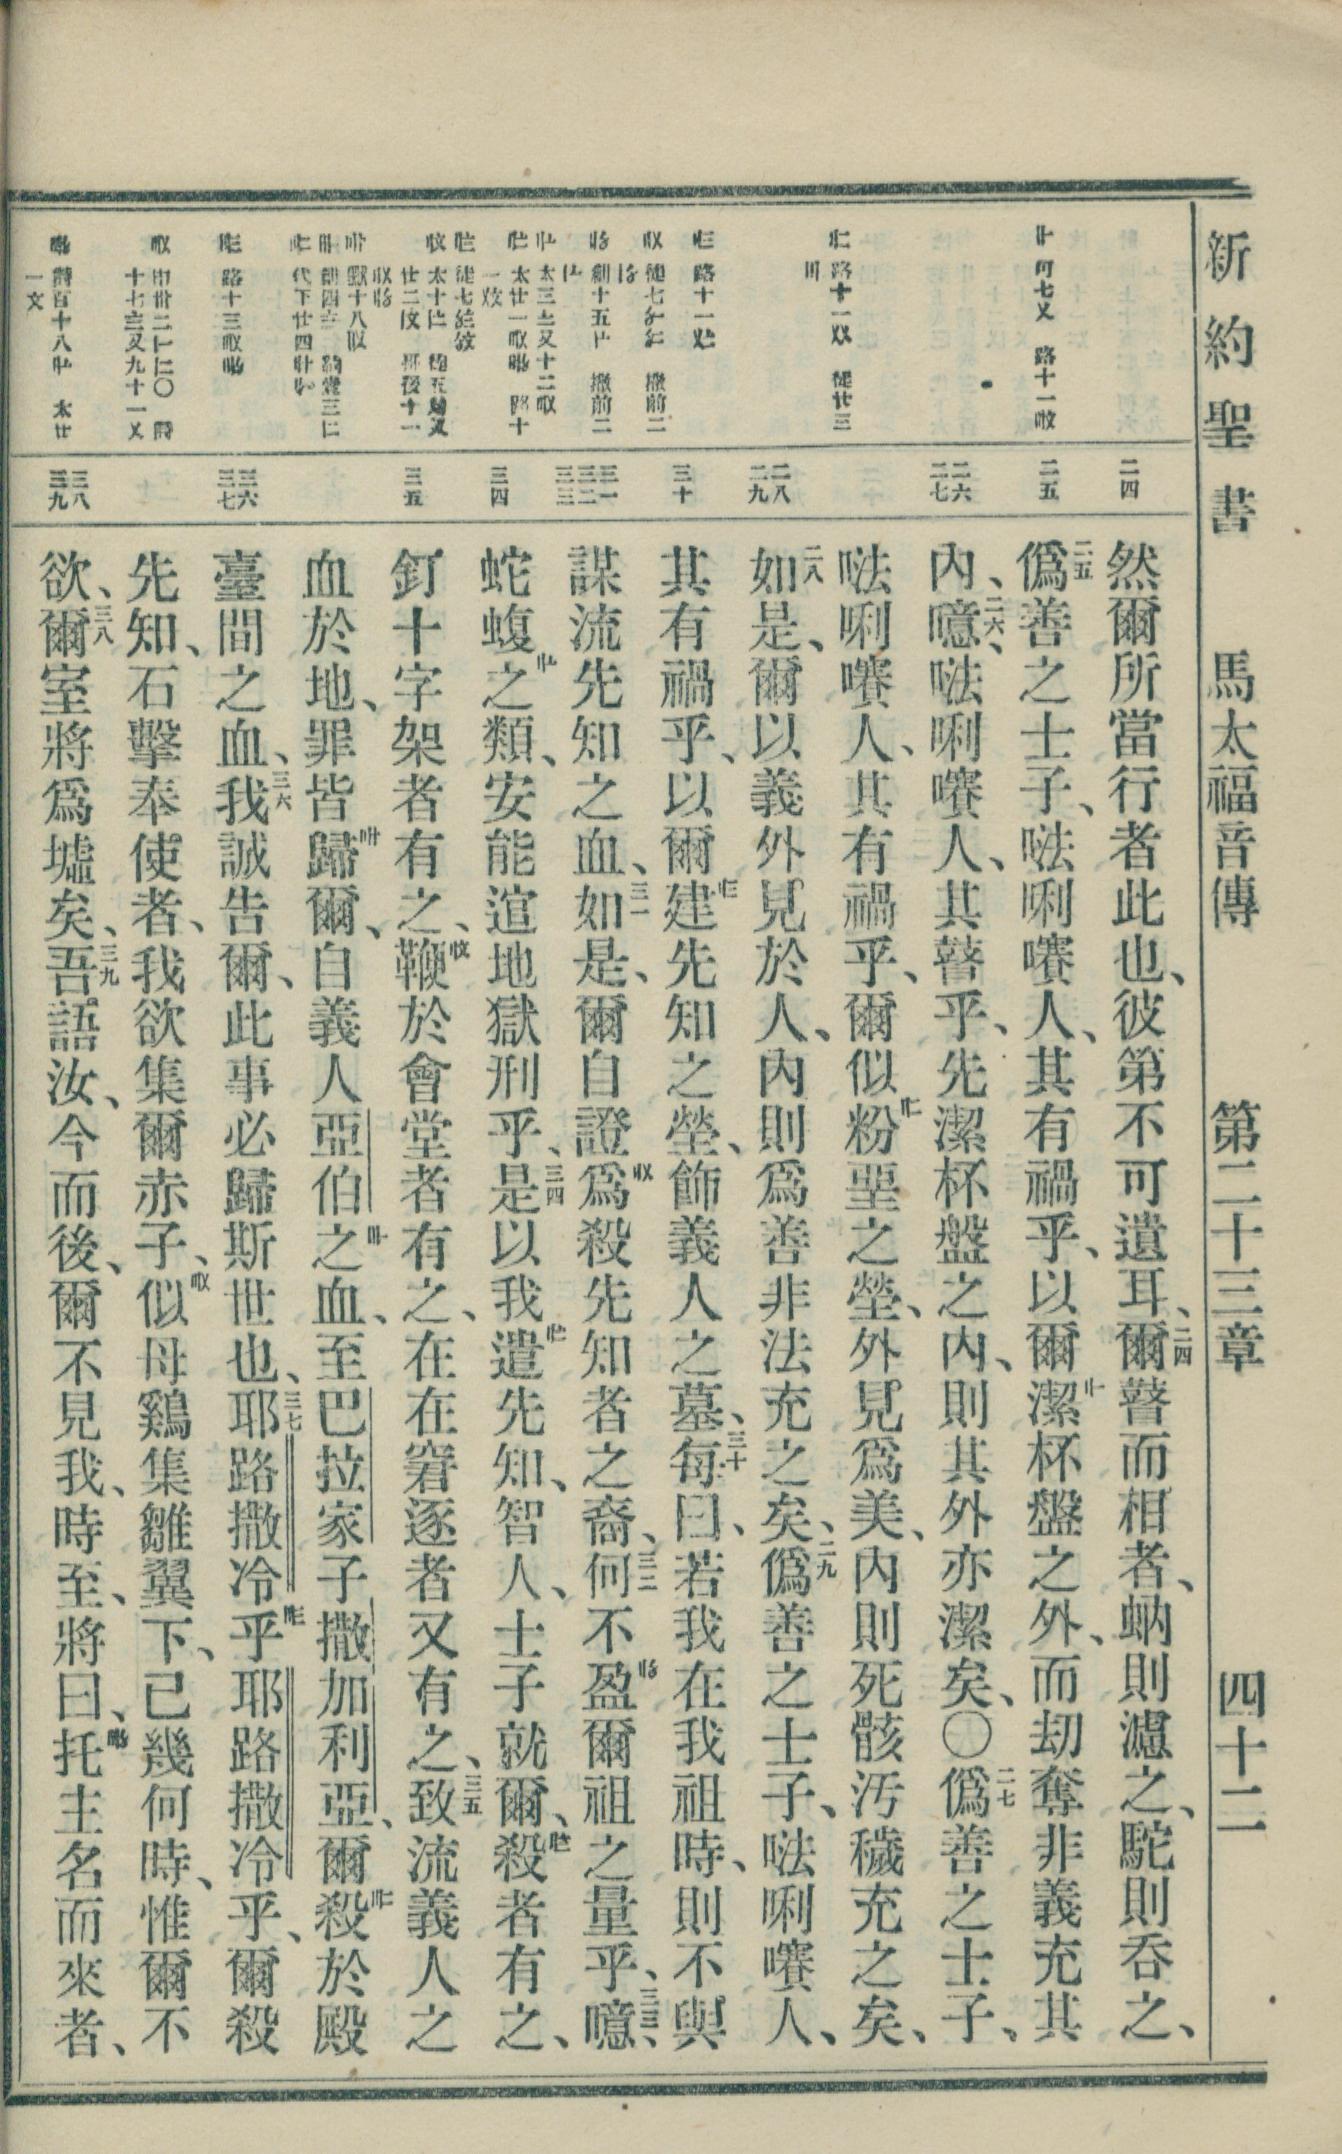 新約聖書 馬太福音傳 第二十三章 四十二
二四
二五
二六
二七
二八
二九
三十
三一
三二
三三
三四
三五
三六
三七
三八
三九
然爾所當行者此也、彼第不可遺耳、二四爾瞽而相者、蚋則濾之、駝則吞之、
二五僞善之士子、㕸唎㘔人、其有禍乎、以爾潔杯盤之外、而刧奪非義充其
內、二六噫、㕸唎㘔人、其瞽乎、先潔杯盤之內、則其外亦潔矣、〇二七僞善之士子、
㕸唎㘔人、其有禍乎、爾似粉堊之塋、外見爲美、內則死骸汚穢充之矣、
二八如是、爾以義外見於人、內則爲善非法充之矣、二九僞善之士子、㕸唎㘔人、
其有禍乎、以爾建先知之塋、飾義人之墓、三十每曰、若我在我祖時、則不與
謀流先知之血、三一如是、爾自證爲殺先知者之裔、三二何不盈爾祖之量乎、三三噫、
蛇蝮之類、安能逭地獄刑乎、三四是以我遣先知、智人、士子就爾、殺者有之、
釘十字架者有之、鞭於會堂者有之、在在窘逐者又有之、三五致流義人之
血於地、罪皆歸爾、自義人亞伯之血、至巴拉家子撒加利亞、爾殺於殿
臺間之血、三六我誠告爾、此事必歸斯世也、三七耶路撒冷乎、耶路撒冷乎、爾殺
先知、石擊奉使者、我欲集爾赤子、似母鷄集雛翼下、已幾何時、惟爾不
欲、三八爾室將爲墟矣、三九吾語汝、今而後、爾不見我、時至、將曰、托主名而來者、